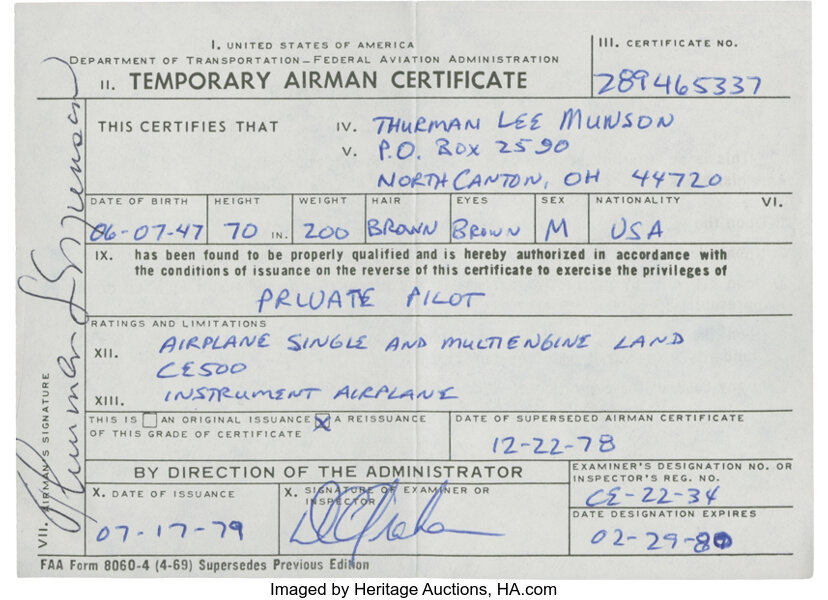 I. UNITED STATES OF AMERICA
DEPARTMENT OF TRANSPORTATION—FEDERAL AVIATION ADMINISTRATION
II. TEMPORARY AIRMAN CERTIFICATE
III. CERTIFICATE NO.
289465337
THIS CERTIFIES THAT IV. THURMAN LEE MUNSON
V. P.O. BOX 2590
NORTH CANTON, OH 44720
DATE OF BIRTH HEIGHT WEIGHT HAIR EYES SEX NATIONALITY VI.
06-07-47 70 IN. 200 BROWN BROWN M USA
IX. has been found to be properly qualified and is hereby authorized in accordance with
the conditions of issuance on the reverse of this certificate to exercise the privileges of
PRIVATE PILOT
RATINGS AND LIMITATIONS
XII. AIRPLANE SINGLE AND MULTIENGINE LAND
CE500
XIII. INSTRUMENT AIRPLANE
THIS IS AN ORIGINAL ISSUANCE X A REISSUANCE
OF THIS GRADE OF CERTIFICATE
DATE OF SUPERSEDED AIRMAN CERTIFICATE
12-22-78
BY DIRECTION OF THE ADMINISTRATOR
EXAMINER'S DESIGNATION NO. OR
INSPECTOR'S REG. NO.
CE-22-34
X. DATE OF ISSUANCE
07-17-79
X. SIGNATURE OF EXAMINER OR
INSPECTOR
DATE DESIGNATION EXPIRES
02-29-80
VII. AIRMAN'S SIGNATURE
Thurman L Munson
FAA Form 8060-4 (4-69) Supersedes Previous Edition
Imaged by Heritage Auctions, HA.com